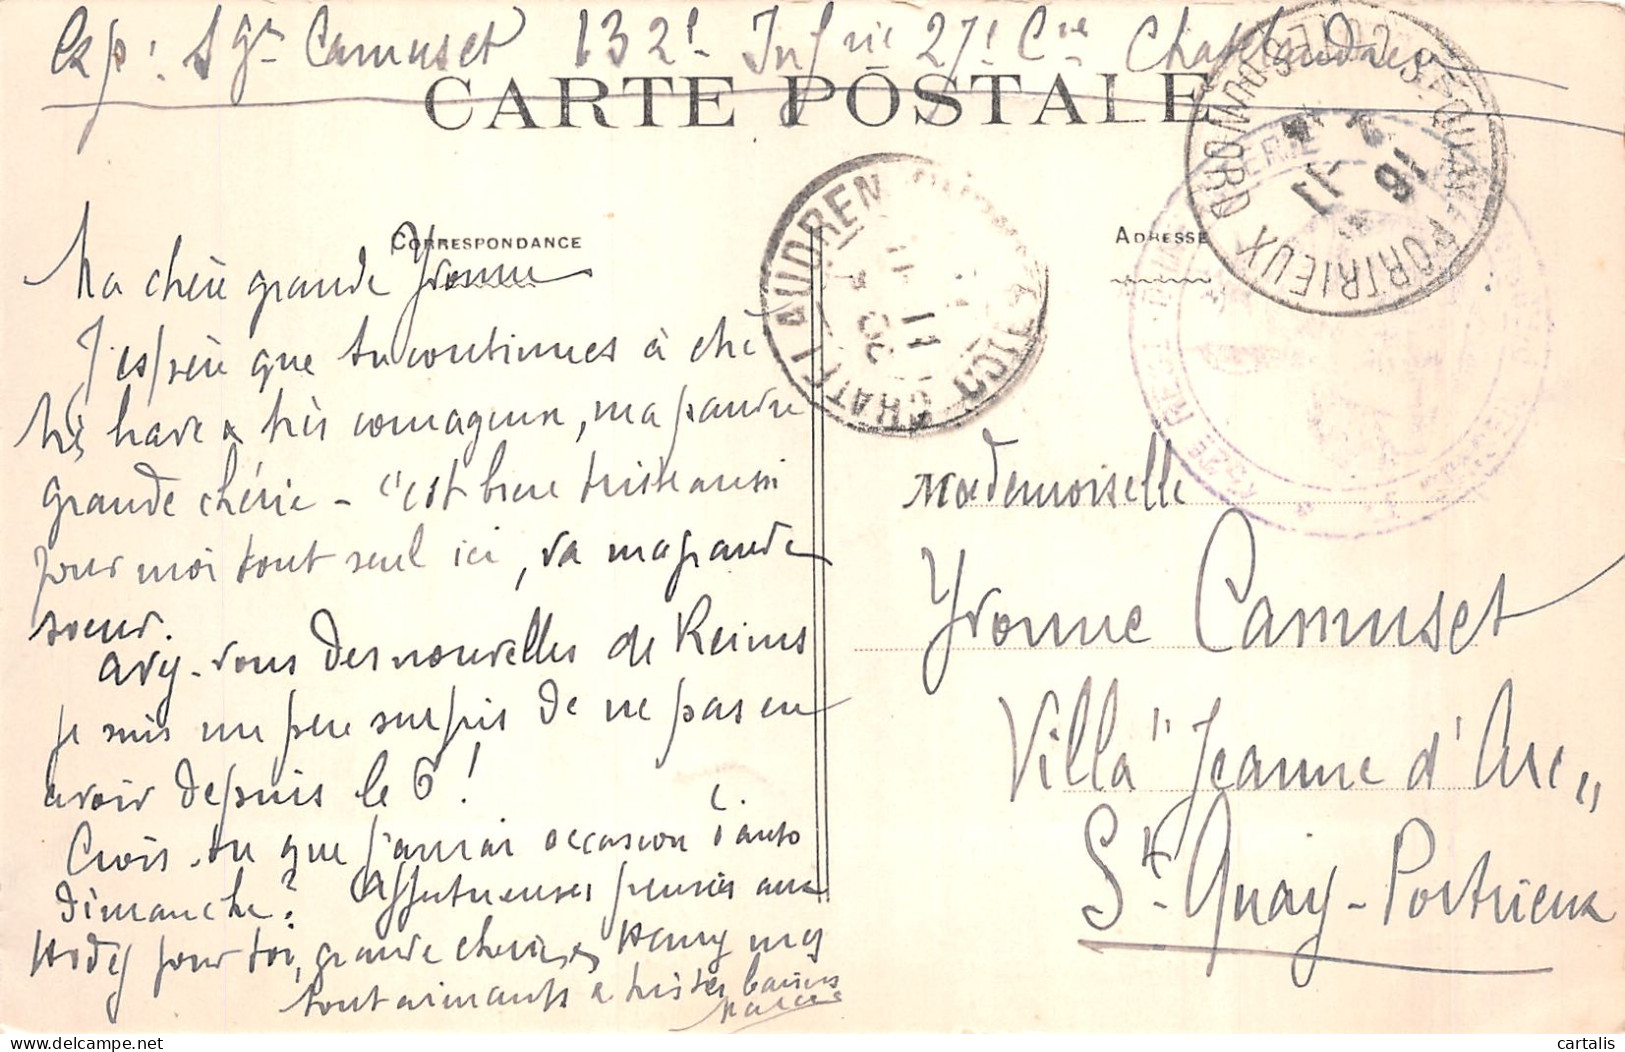 Exp: Sgt Camuset 132e Infrie 27e Cie Chatelaudren
CARTE POSTALE
CORRESPONDANCE
ADRESSE
Ma chère grande Yvonne
J'espère que tu continues à être
très brave & très courageuse, ma pauvre
grande chérie - c'est bien triste aussi
pour moi tout seul ici, va ma grande
soeur.
avez-vous des nouvelles de Reims
je suis un peu surpris de ne pas en
avoir depuis le 6 !
Crois-tu que j'aurai occasion d'auto
dimanche? Affectueuses pensées aux
pour toi, grande chérie, mes
tout aimants & tristes baisers
Marcel
CHATELAUDREN
ST QUAY-PORTRIEUX
COTES-DU-NORD
16 -11
132E REGIMENT D'INFANTERIE
Mademoiselle
Yvonne Camuset
Villa "Jeanne d'Arc"
St. Quay-Portrieux
cartalis
delcampe.net